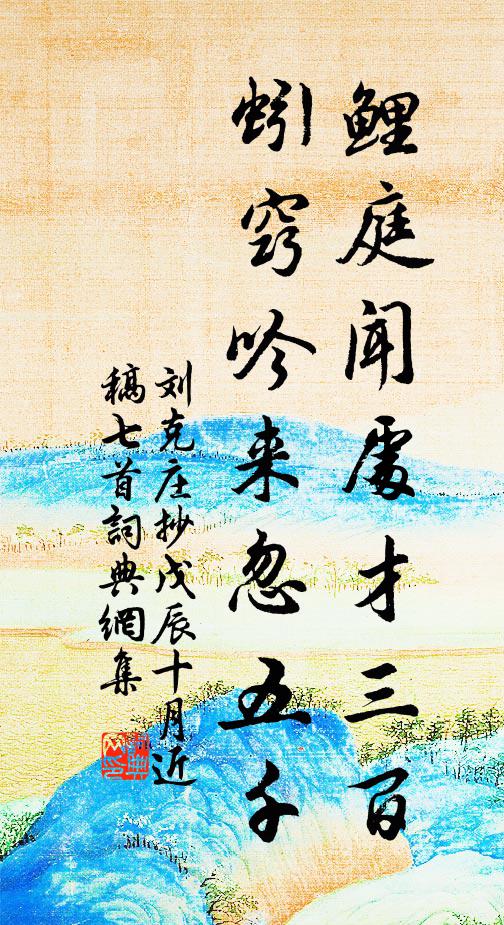 鲤庭闻處才三百
蚓窍吟来忽五千
刘克庄抄戊辰十月近
稿七首詞典網集